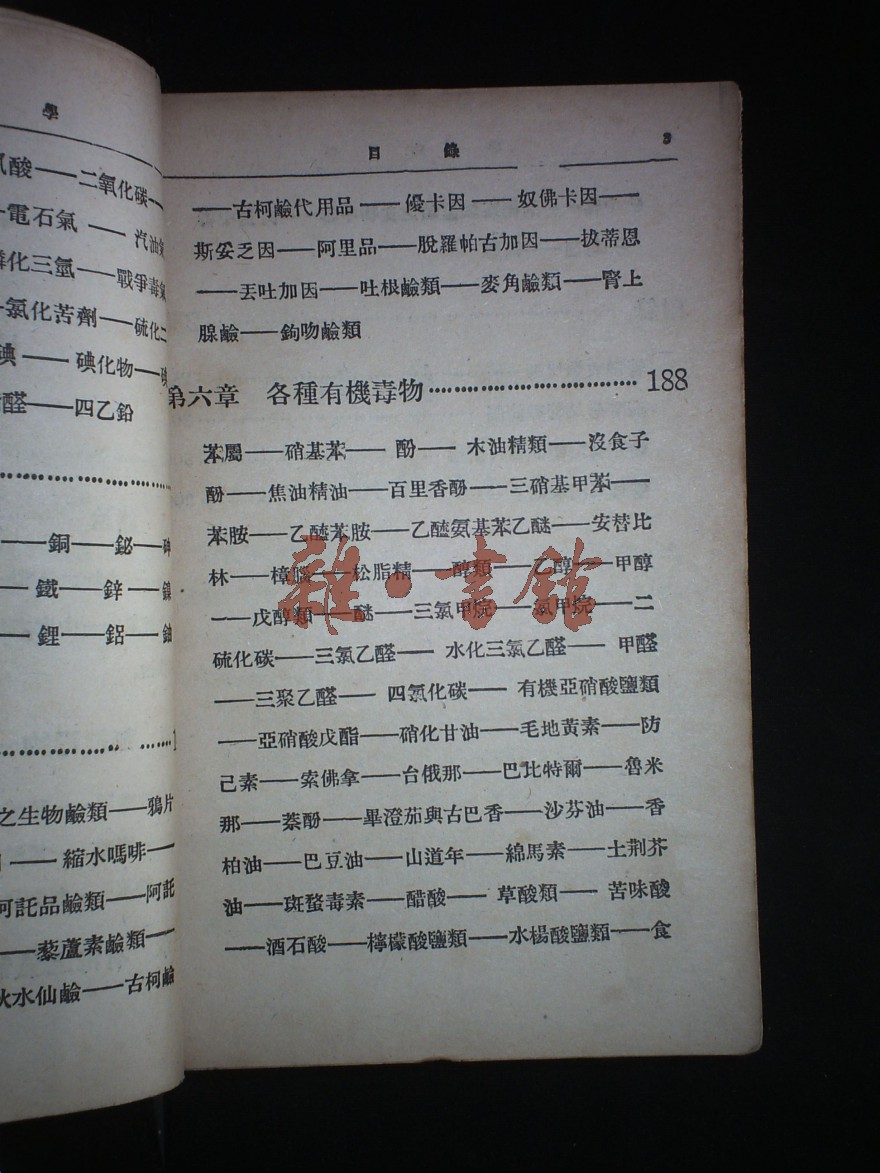 學
酸——二氧化碳——
電石氣——汽油
化三氫——戰爭毒氣
氯化苦劑——硫化二
碘——碘化物——
醛——四乙鉛
——銅——鉍——砷
——鐵——鋅——鎳
——鋰——鋁——鈾
之生物鹼類——鴉片
——縮水嗎啡——
阿託品鹼類——阿託
——藜蘆素鹼類——
秋水仙鹼——古柯鹼
目錄 3
——古柯鹼代用品——優卡因——奴佛卡因——
斯妥乏因——阿里品——脫羅帕古加因——拔蒂恩
——丟吐加因——吐根鹼類——麥角鹼類——腎上
腺鹼——鉤吻鹼類
第六章 各種有機毒物……………………188
苯屬——硝基苯——酚——木油精類——沒食子
酚——焦油精油——百里香酚——三硝基甲苯——
苯胺——乙醯苯胺——乙醯氨基苯乙醚——安替比
林——樟腦——松脂精——醇類——乙醇——甲醇
——戊醇類——醚——三氯甲烷——氯甲烷——二
硫化碳——三氯乙醛——水化三氯乙醛——甲醛
——三聚乙醛——四氯化碳——有機亞硝酸鹽類
——亞硝酸戊酯——硝化甘油——毛地黃素——防
己素——索佛拿——台俄那——巴比特爾——魯米
那——萘酚——畢澄茄與古巴香——沙芬油——香
柏油——巴豆油——山道年——綿馬素——土荆芥
油——斑蝥毒素——醋酸——草酸類——苦味酸
——酒石酸——檸檬酸鹽類——水楊酸鹽類——食
雜·書館